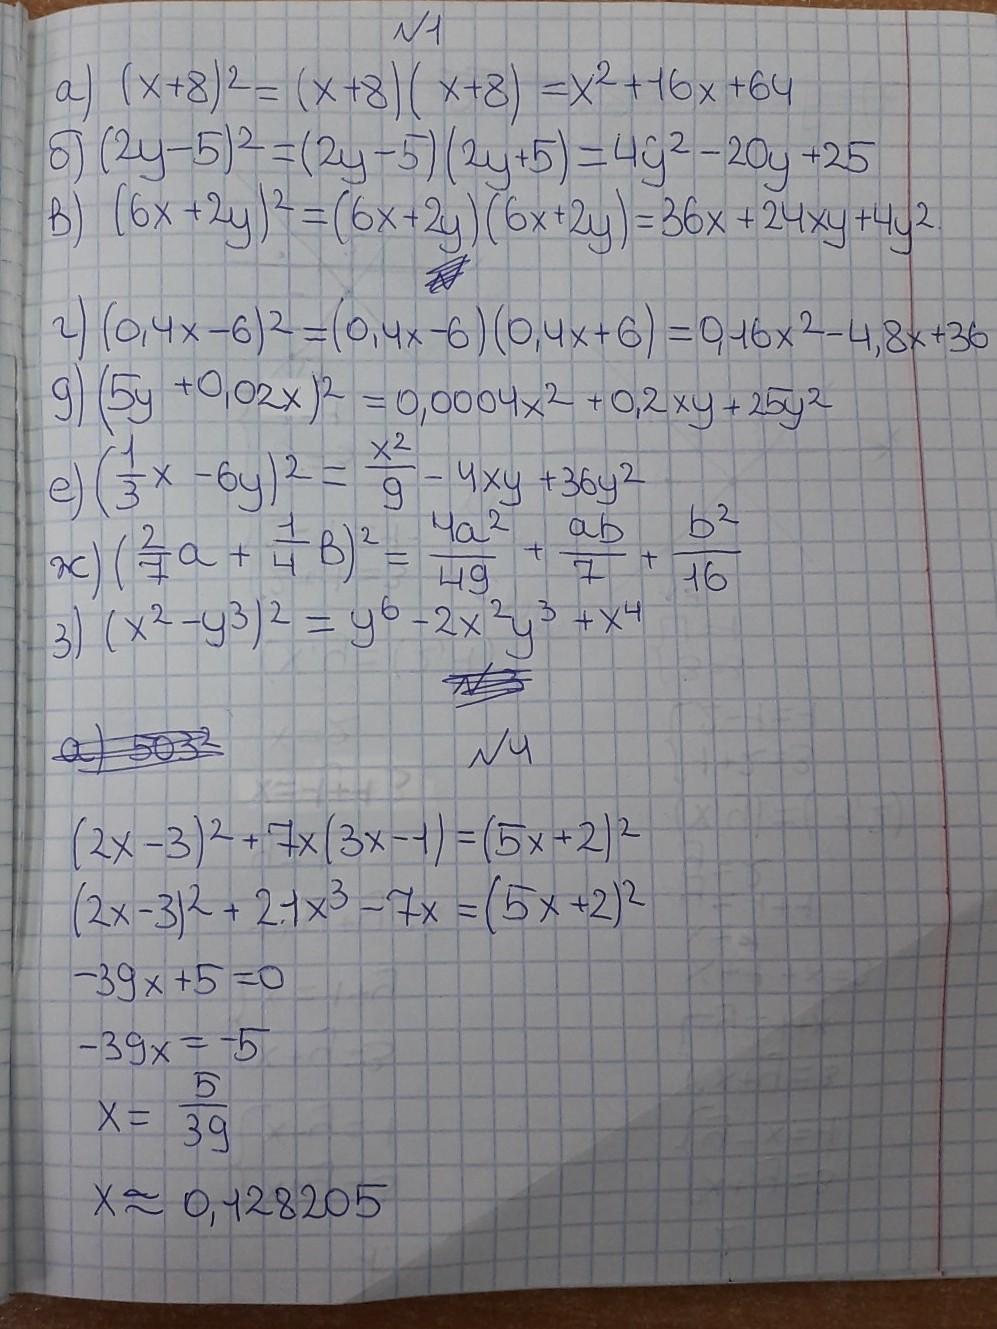 №1
а) (x+8)² = (x+8)(x+8) = x² + 16x + 64
б) (2y-5)² = (2y-5)(2y+5) = 4y² - 20y + 25
в) (6x+2y)² = (6x+2y)(6x+2y) = 36x + 24xy + 4y²
г) (0,4x-6)² = (0,4x-6)(0,4x+6) = 0,16x² - 4,8x + 36
д) (5y + 0,02x)² = 0,0004x² + 0,2xy + 25y²
е) (1/3 x - 6y)² = x²/9 - 4xy + 36y²
ж) (2/7 a + 1/4 b)² = 4a²/49 + ab/7 + b²/16
з) (x² - y³)² = y⁶ - 2x²y³ + x⁴
№3
а) 503²
№4
(2x-3)² + 7x(3x-1) = (5x+2)²
(2x-3)² + 21x³ - 7x = (5x+2)²
-39x + 5 = 0
-39x = -5
x = 5/39
x ≈ 0,128205